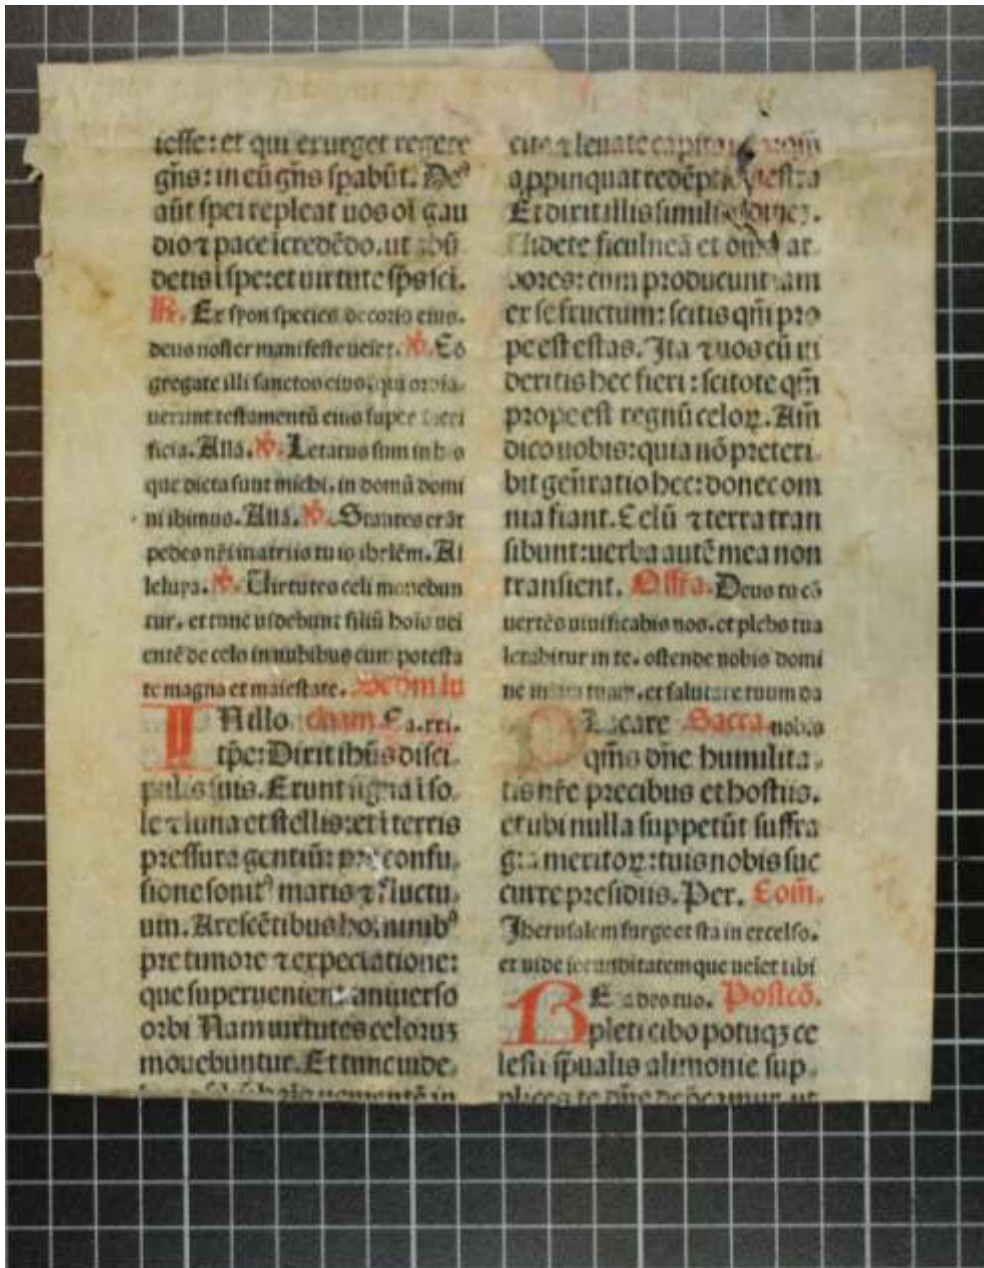 iesse: et qui exurget regere
gn̄s: in eū gn̄s spabūt. De⁹
aūt spei repleat uos oī gau
dio ⁊ pace ī credēdo. ut abū
detis ī spe: et uirtute sp̄s sci.
R. Ex syon species decoris eius.
deus noster manifeste ueiet. V. Cō
gregate illi sanctos eius, qui ordia.
uerunt testamentū eius super sacri
ficia. Allā. V. Letatus sum in his
que dicta sunt michi. in domū domi
ni ibimus. Allā. V. Stantes erāt
pedes nr̄i in atriis tuis ihrlēm. Al
leluya. V. Virtutes celi mouebun
tur. et tunc uidebunt filiū hoīs uei
entē de celo in nubibus cum potesta
te magna et maiestate. Scd̄m lu
IN illo cham. Ca. xxi.
tp̄e: Dixit ihūs disci.
pulis suis. Erunt signa ī so.
le ⁊ luna et stellis: et ī terris
pressura gentiū: pre confu.
sione sonit⁹ maris ⁊ fluctu.
um. Arescētibus hominib⁹
pre timore ⁊ expectatione:
que superuenient uniuerso
orbi Nam uirtutes celoruꝫ
mouebuntur. Et tunc uide.
uenientē in
cite ⁊ leuate capita
appinquat redēptio uestra
Et dixit illis similitudinez.
Uidete ficulneā et om̄s ar.
bores: cum producunt iam
ex se fructum: scitis qm̄ pro
pe est estas. Ita ⁊ uos cū ui
deritis hec fieri: scitote qm̄
prope est regnū celoꝝ. Am̄
dico uobis: quia nō preteri.
bit gen̄ratio hec: donec om
nia fiant. Celū ⁊ terra tran
sibunt: uerba autē mea non
transient. Offa. Deus tu cō
uertēs uiuificabis nos. et plebs tua
letabitur in te. ostende nobis domi
ne miam tuam. et salutare tuum da
PLacare Sacra. nobis
qm̄s dn̄e humilita.
tis nr̄e precibus et hostiis.
et ubi nulla suppetūt suffra
gia meritoꝝ: tuis nobis suc
curre presidiis. Per. Com̄.
Jherusalem surge et sta in excelso.
et uide iocunditatem que ueiet tibi
RE a deo tuo. Postcō.
pleti cibo potuqꝫ ce
lesti sp̄ualis alimonie sup.
plices te dn̄e dep̄camur. ut